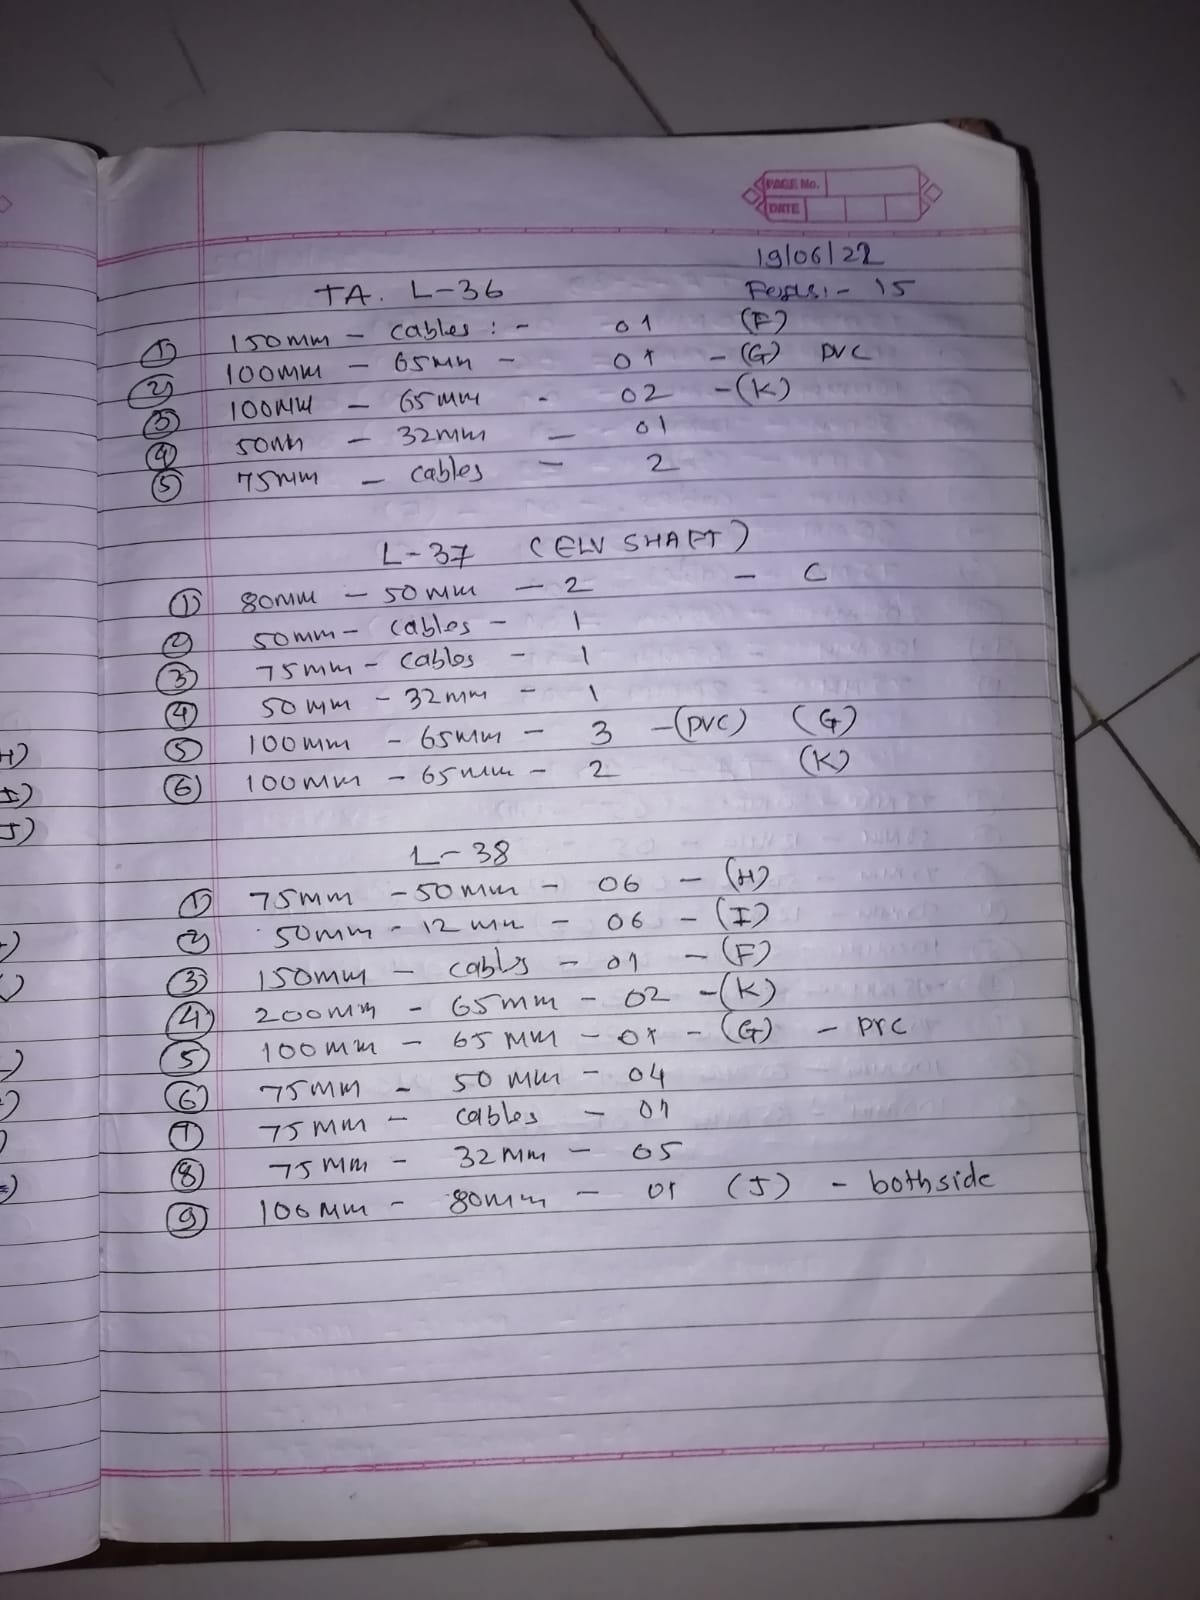 PAGE No.
DATE
19/06/22
TA. L-36 15
① 150mm - cables :- 01 (F)
② 100mm - 65mm - 01 - (G) PVC
③ 100mm - 65mm - 02 - (K)
④ 50mm - 32mm - 01
⑤ 75mm - cables - 2
L-37 (ELV SHAFT)
① 80mm - 50mm - 2 - C
② 50mm - cables - 1
③ 75mm - cables - 1
④ 50mm - 32mm - 1
⑤ 100mm - 65mm - 3 - (PVC) (G)
⑥ 100mm - 65mm - 2 (K)
L-38
① 75mm - 50mm - 06 - (H)
② 50mm - 12mm - 06 - (I)
③ 150mm - cables - 01 - (F)
④ 200mm - 65mm - 02 - (K)
⑤ 100mm - 65mm - 01 - (G) - PVC
⑥ 75mm - 50mm - 04
⑦ 75mm - cables - 01
⑧ 75mm - 32mm - 05
⑨ 100mm - 80mm - 01 (J) - bothside
H)
I)
J)